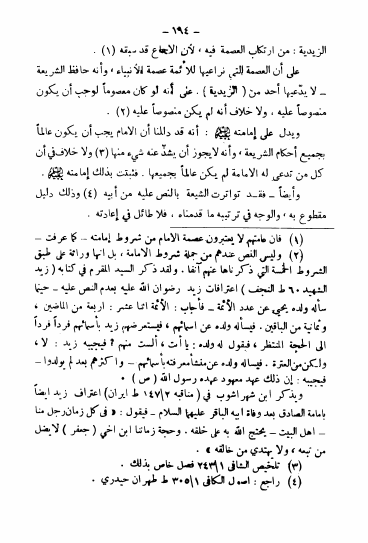 - ١٩٤ -
الزيدية : من ارتكاب العصمة فيه ، لأن الاجماع قد سبقته (١) .
على أن العصمة التي نراعيها للأئمة عصمة للأنبياء ، وأنه حافظ الشريعة
- لا يدّعيها أحد من ( الزيدية ) . على أنه لو كان معصوماً لوجب أن يكون
منصوصاً عليه ، ولا خلاف أنه لم يكن منصوصاً عليه (٢) .
ويدل على إمامته ﷺ : أنه قد دللنا أن الامام يجب أن يكون عالماً
بجميع أحكام الشريعة ، وأنه لايجوز أن يشذّ عنه شيء منها (٣) ولا خلاف في أن
كل من تدعى له الامامة لم يكن عالماً بجميعها . فثبت بذلك إمامته ﷺ .
وأيضاً - فقد تواترت الشيعة بالنص عليه من أبيه (٤) وذلك دليل
مقطوع به ، والوجه في ترتيبه ما قدمناه ، فلا طائل في إعادته .
(١) فان عامتهم لا يعتبرون عصمة الامام من شروط إمامته - كما عرفت -
(٢) وليس النص عندهم من جملة شروط الامامة ، بل انها وراثة على طبق
الشروط الخمسة التي ذكرناها عنهم آنفا . ولقد ذكر السيد المقرم في كتابه ( زيد
الشهيد ٦٠ ط النجف ) اعترافات زيد رضوان الله عليه بعدم النص عليه - حينما
سأله ولده يحيى عن عدد الأئمة - فأجاب : الأئمة اثنا عشر : اربعة من الماضين ،
وثمانية من الباقين . فيسأله ولده عن اسمائهم ، فيستعرضهم زيد بأسمائهم فرداً فرداً
الى الحجة المنتظر ، فيقول له ولده : يا أبت ، ألست منهم ? فيجيبه زيد : لا ،
ولكن من العترة . فيسأله ولده عن منشأ معرفته بأسمائهم - واكثرهم بعد لم يولدوا -
فيجيبه : إن ذلك عهد معهود عهده رسول الله ( ص ) .
ويذكر ابن شهر اشوب في ( مناقبه ١٤٧/٢ ط ايران ) اعتراف زيد ايضاً
بامامة الصادق بعد وفاة ابيه الباقر عليهما السلام - فيقول : « في كل زمان رجل منا
- اهل البيت - يحتج الله به على خلقه . وحجة زماننا ابن اخي ( جعفر ) لايضل
من تبعه ، ولا يهتدي من خالفه » .
(٣) تلخيص الشافى ٢٤٣/١ فصل خاص بذلك .
(٤) راجع : اصول الكافى ٣٠٥/١ ط طهران حيدري .